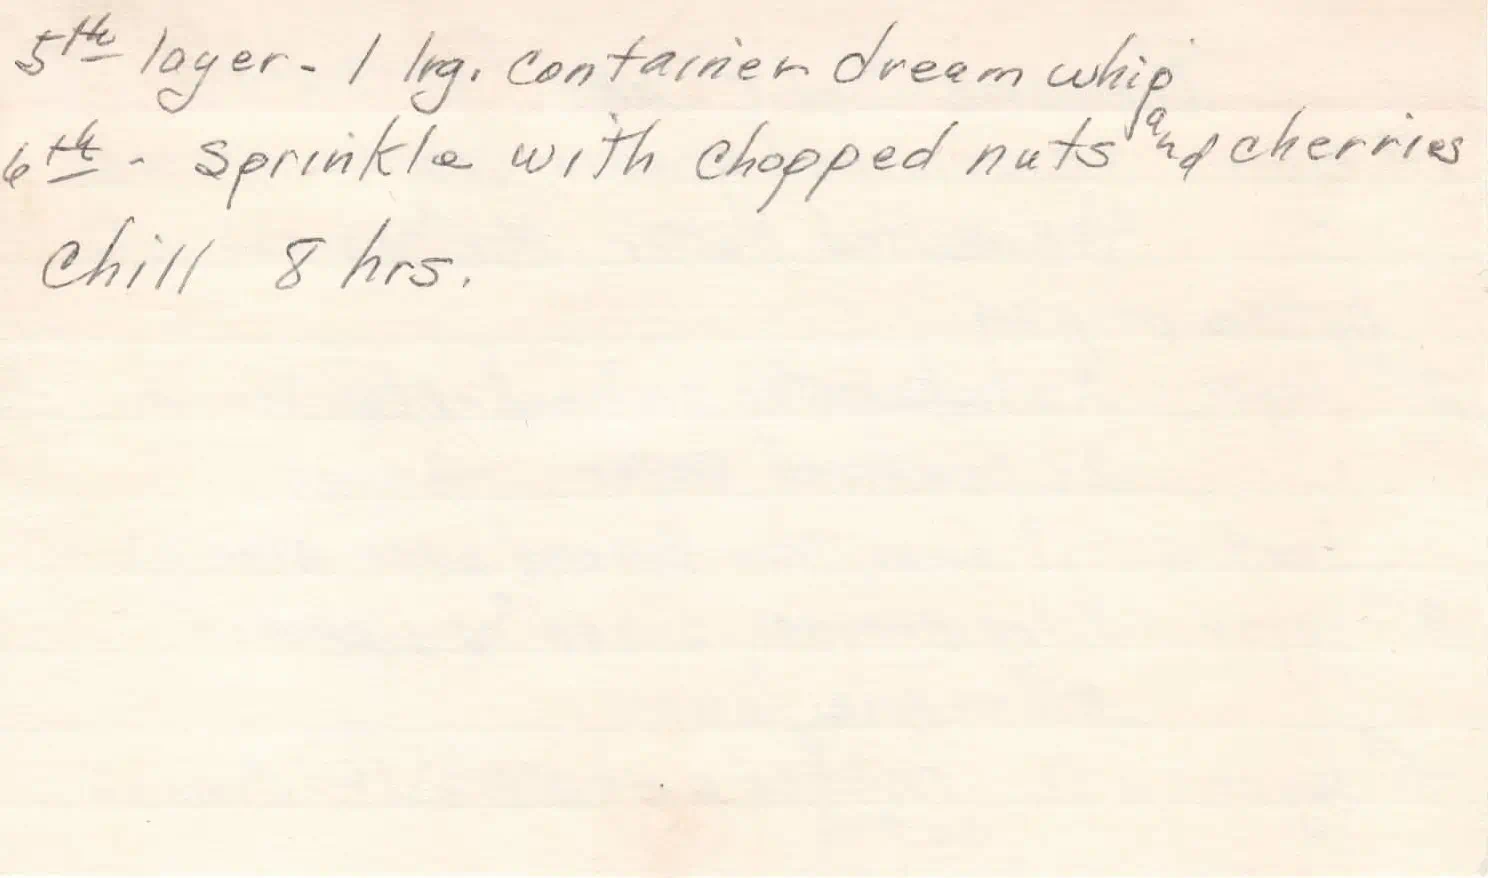 5th layer - 1 lrg. container dream whip
6th - sprinkle with chopped nuts and cherries
Chill 8 hrs.